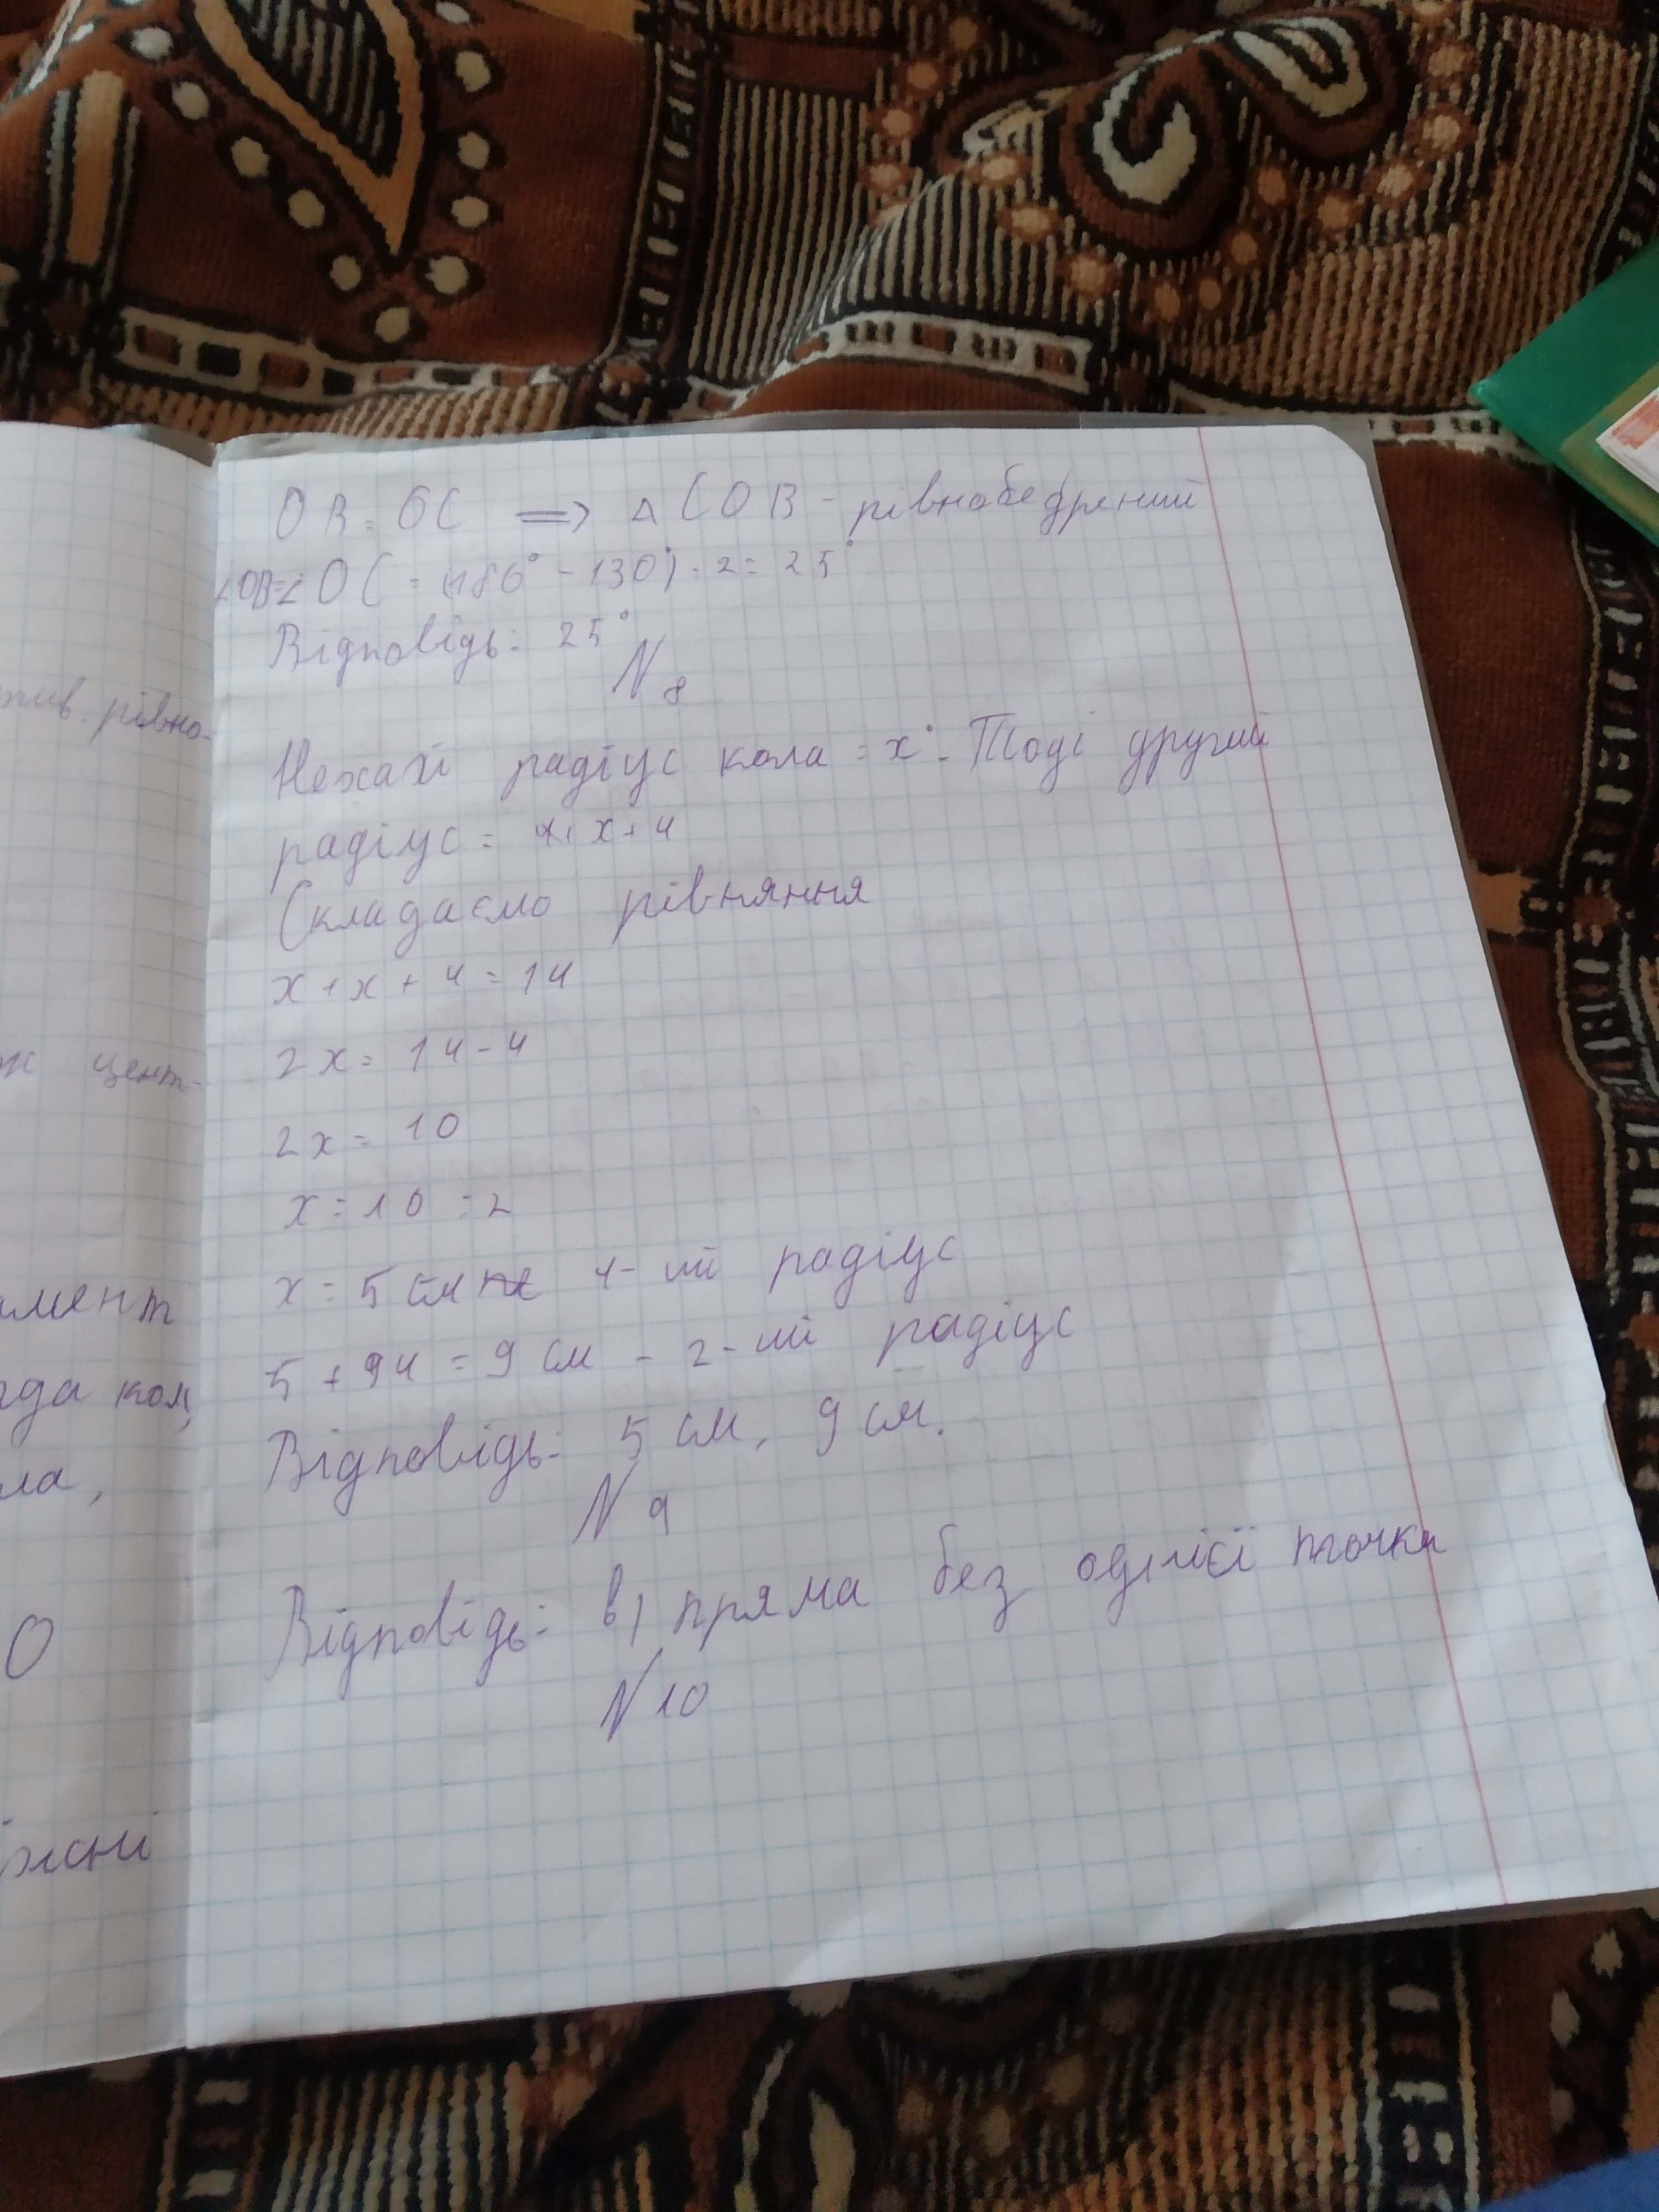 OB = OC ⟹ △ COB - рівнобедрений
∠OB=∠OC = (180° - 130°) : 2 = 25°
Відповідь: 25°
N 8
Нехай радіус кола = x. Тоді другий
радіус = x + 4
Складаємо рівняння
x + x + 4 = 14
2x = 14 - 4
2x = 10
x = 10 : 2
x = 5 см 1-ий радіус
5 + 4 = 9 см - 2-ий радіус
Відповідь: 5 см, 9 см.
N 9
Відповідь: в) пряма без однієї точки
N 10
рівно-
цент-
мент
да кол,
ла,
О
жні